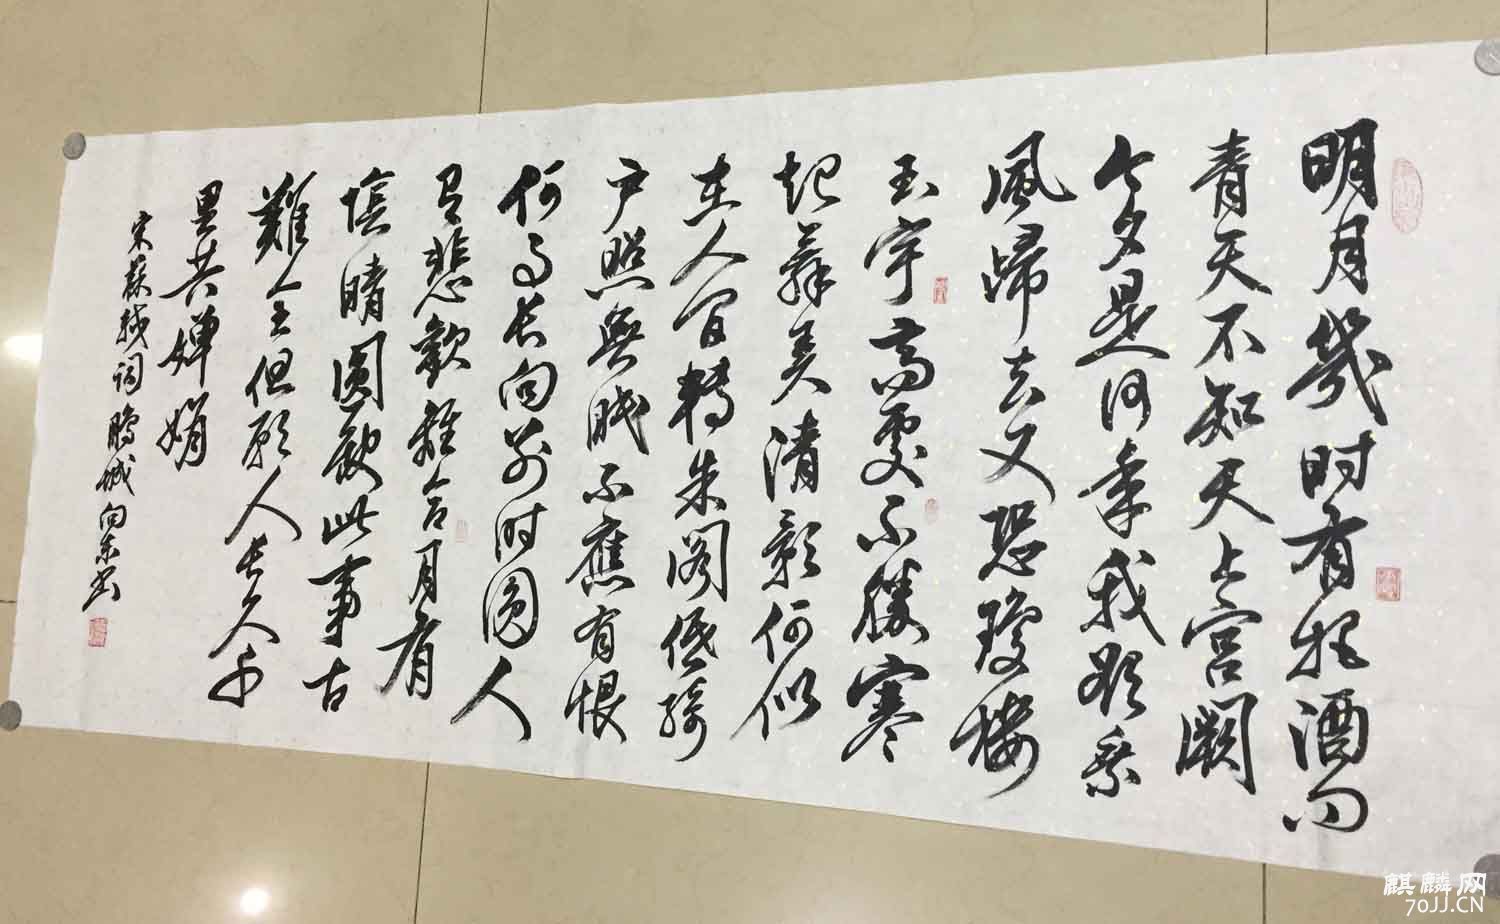 明月幾时有把酒问
青天不知天上宫阙
今夕是何年我欲乘
風歸去又恐瓊楼
玉宇高處不勝寒
起舞弄清影何似
在人间轉朱阁低绮
户照無眠不應有恨
何事长向别时圆人
有悲歡離合月有
陰晴圓缺此事古
難全但願人长久千
里共婵娟
宋蘇軾词 鹏城向东书
麒麟网
70JJ.CN